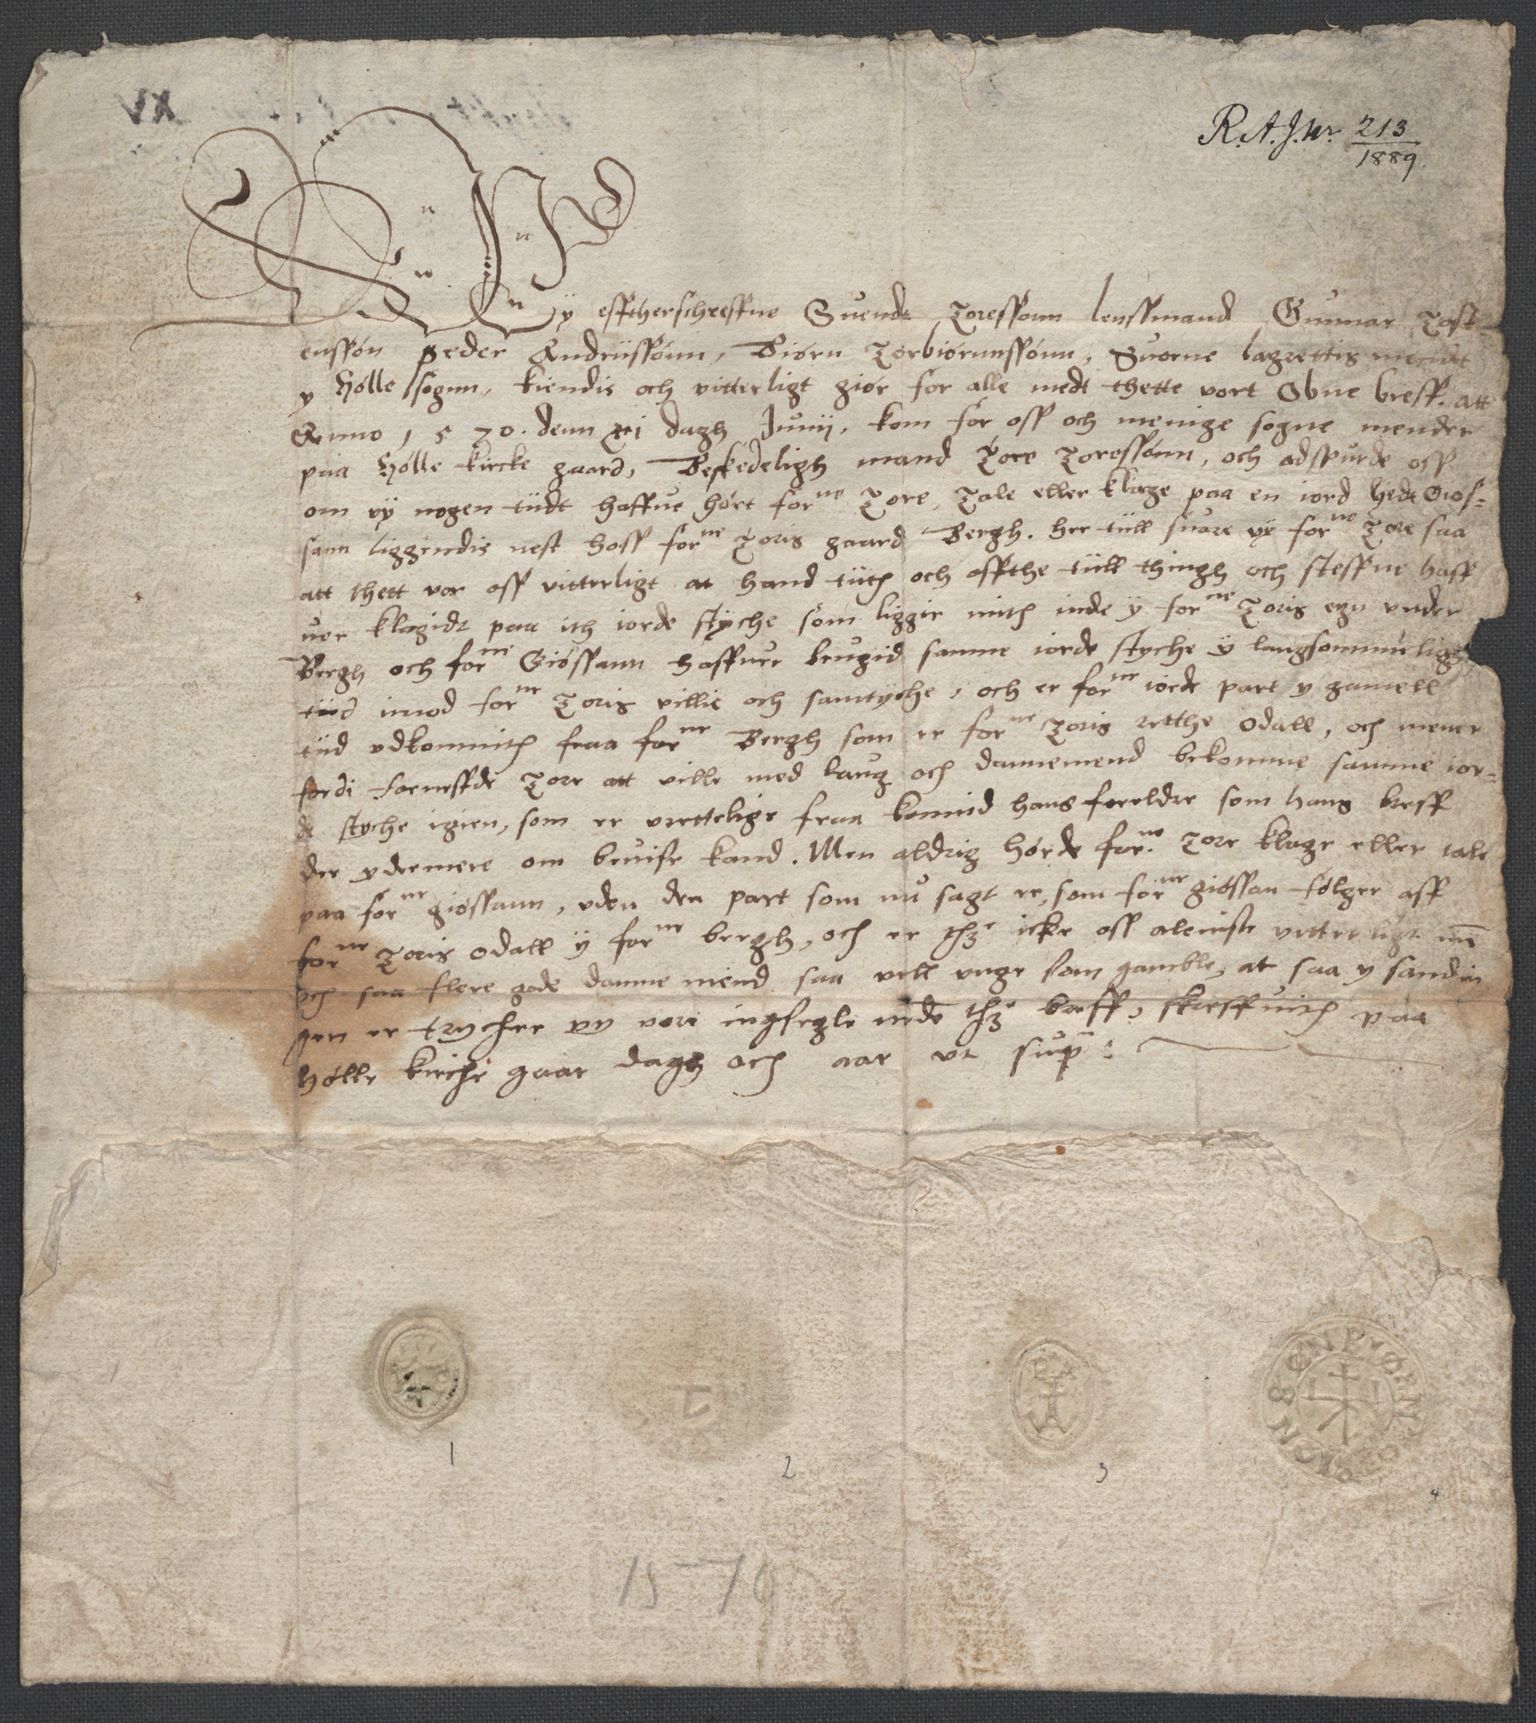 R.A.J.nr. 213
1889.
Wy effterschreffne Suendt Toressonn lenssmand Gunnar Tost-
enssøn Peder Andrüssønn, Biørn Torbiørnnssønn, Suorne lagrettis mendt
y Hølle sognn, kiendis och vitterligt giør for alle medt thette vort Obne breff. att
Anno 1570. denn xi dagh Junij, kom for oss och menige sogne mender
paa Hølle kircke gaard, Beskedeligh mand Tore Toressønn, och adspurde oss
om vÿ nogen tiidt haffue hørt forne Tore, Tale eller klage paa en iord hedt Giøs-
sann liggendis nest hoss forne Toris gaard Bergh. her tiill suare vÿ forne Tore saa
att thett var oss vitterligt at hand tiith och offthe tiill thingh och steffne haff
uer klagidt paa ith iorde stÿche som liggir mith inde ÿ forne Toris egn vnder
Bergh och forne Giøssann haffuer brugid samme iorde styche ÿ langsommeligh
tiid imod forne Toris villie och samtÿche, och er forne iorde part y gamell
tiid vdkommith fraa forne Bergh som er forne Toris retthe Odall, och mener
fordi fornessde Tore att ville med laug och dannemend bekomme samme ior-
de styche igien, som er vrettelige fraa kommid hans foreldre som hans breff
der ydermere om beuise kand. Men aldrig hørde forne Tore klage eller tale
paa forne giøssann, vden den part som nu sagt er, som forne giøssan følger aff
forne Toris odall ÿ forne bergh, och er thz icke oss aleniste vitterligt mē
och saa flere gode danne mend saa vell vnge som gamble, at saa y sandin
gen er trycher vy vore ingsegle nede thz breff, skreffuith paa
Hølle kirche gaar dagh och aar vt sup:
1
2
3
4
1570